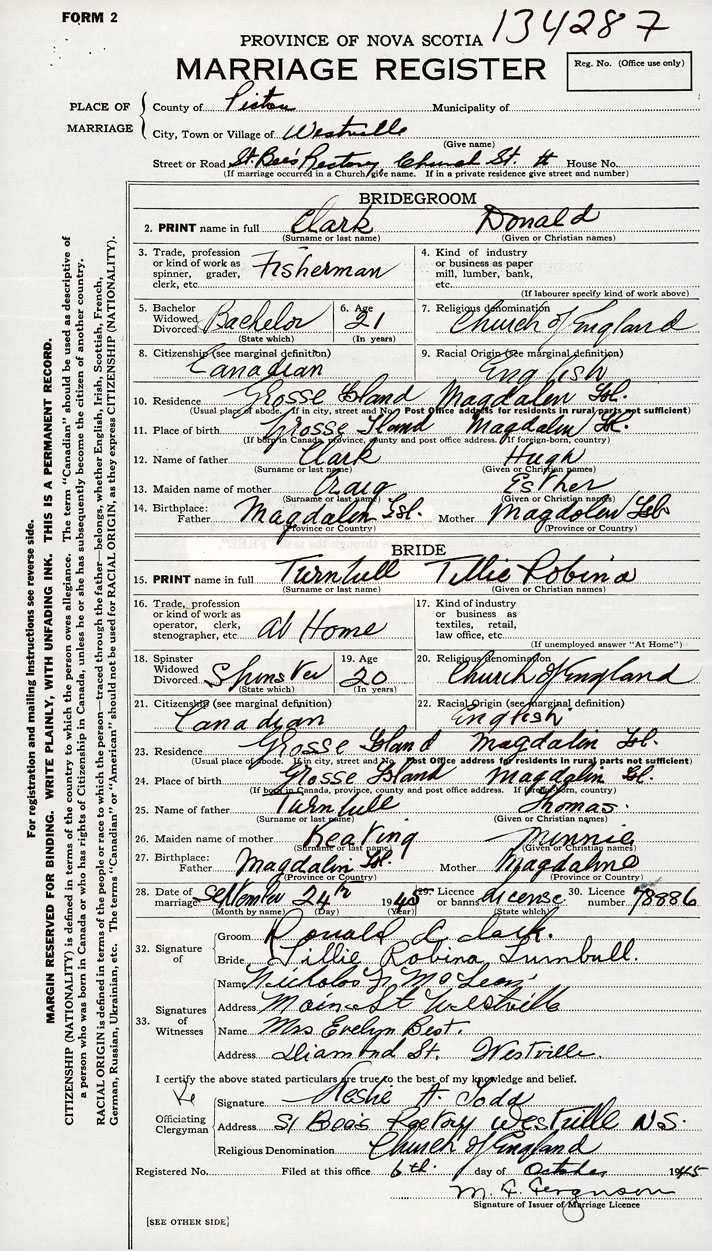 FORM 2
134287
PROVINCE OF NOVA SCOTIA
MARRIAGE REGISTER
Reg. No. (Office use only)
PLACE OF MARRIAGE
County of Pictou Municipality of
City, Town or Village of Westville
(Give name)
Street or Road St. Bee's Rectory, Church St. House No.
(If marriage occurred in a Church give name. If in a private residence give street and number)
BRIDEGROOM
2. PRINT name in full Clark Donald
(Surname or last name) (Given or Christian names)
3. Trade, profession or kind of work as spinner, grader, clerk, etc. Fisherman
4. Kind of industry or business as paper mill, lumber, bank, etc.
(If labourer specify kind of work above)
5. Bachelor Widowed Divorced Bachelor (State which)
6. Age 21 (In years)
7. Religious denomination Church of England
8. Citizenship (see marginal definition) Canadian
9. Racial Origin (see marginal definition) English
10. Residence Grosse Island Magdalen Isl.
(Usual place of abode. If in city, street and No. Post Office address for residents in rural parts not sufficient)
11. Place of birth Grosse Island Magdalin Isl.
(If born in Canada, province, county and post office address. If foreign-born, country)
12. Name of father Clark Hugh
(Surname or last name) (Given or Christian names)
13. Maiden name of mother Craig Esther
(Surname or last name) (Given or Christian names)
14. Birthplace: Father Magdalin Isl. Mother Magdolen Isls
(Province or Country) (Province or Country)
BRIDE
15. PRINT name in full Turnbull Tillie Robina
(Surname or last name) (Given or Christian names)
16. Trade, profession or kind of work as operator, clerk, stenographer, etc. at Home
17. Kind of industry or business as textiles, retail, law office, etc.
(If unemployed answer "At Home")
18. Spinster Widowed Divorced Spinster (State which)
19. Age 20 (In years)
20. Religious denomination Church of England
21. Citizenship (see marginal definition) Canadian
22. Racial Origin (see marginal definition) English
23. Residence Grosse Island Magdalin Isl.
(Usual place of abode. If in city, street and No. Post Office address for residents in rural parts not sufficient)
24. Place of birth Grosse Island Magdalin Isl.
(If born in Canada, province, county and post office address. If foreign-born, country)
25. Name of father Turnbull Thomas.
(Surname or last name) (Given or Christian names)
26. Maiden name of mother Keating Minnie
(Surname or last name) (Given or Christian names)
27. Birthplace: Father Magdalin Isl. Mother Magdaline
(Province or Country) (Province or Country)
28. Date of marriage September 24th 1945
(Month by name) (Day) (Year)
29. Licence or banns License (State which)
30. Licence number 78886
32. Signature of
Groom Donald C Clark.
Bride Tillie Robina Turnbull.
33. Signatures of Witnesses
Name Nicholas McLean
Address Main St Westville
Name Mrs Evelyn Best.
Address Diamond St. Westville.
I certify the above stated particulars are true to the best of my knowledge and belief.
Officiating Clergyman
Signature Leslie A. Todd
Address St Bee's Rectory Westville N.S.
Religious Denomination Church of England
Registered No. Filed at this office 6th. day of October 1945
M. F. Ferguson
Signature of Issuer of Marriage Licence
[SEE OTHER SIDE]
For registration and mailing instructions see reverse side.
MARGIN RESERVED FOR BINDING. WRITE PLAINLY, WITH UNFADING INK. THIS IS A PERMANENT RECORD.
CITIZENSHIP (NATIONALITY) is defined in terms of the country to which the person owes allegiance. The term "Canadian" should be used as descriptive of
a person who was born in Canada or who has rights of Citizenship in Canada, unless he or she has subsequently become the citizen of another country.
RACIAL ORIGIN is defined in terms of the people or race to which the person—traced through the father—belongs, whether English, Irish, Scottish, French,
German, Russian, Ukrainian, etc. The terms "Canadian" or "American" should not be used for RACIAL ORIGIN, as they express CITIZENSHIP (NATIONALITY).